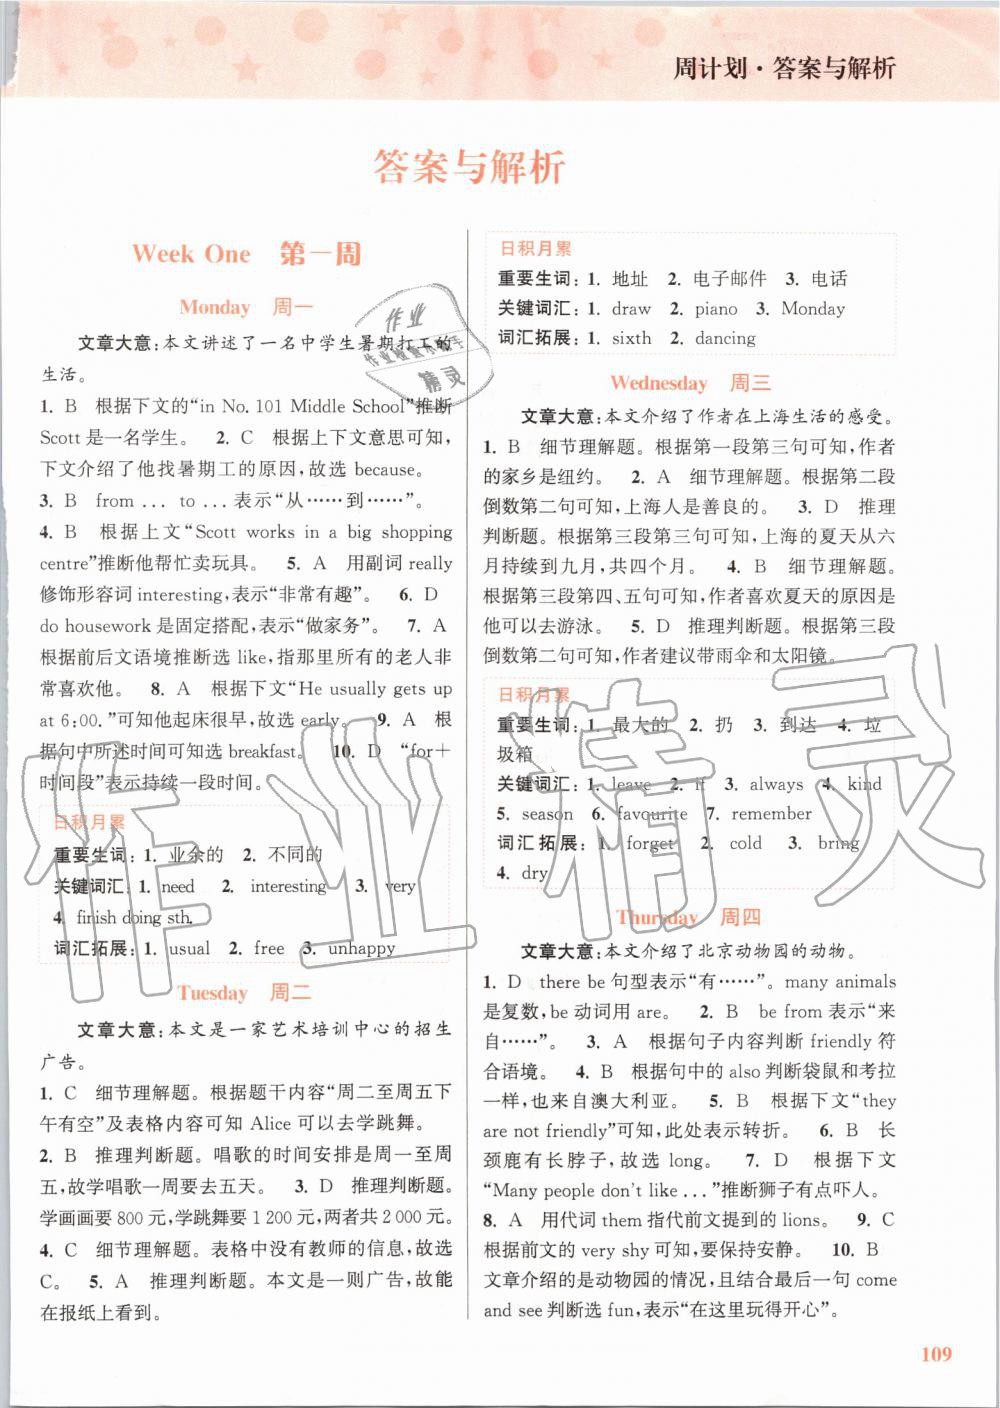 周计划·答案与解析
答案与解析
Week One 第一周
Monday 周一
文章大意:本文讲述了一名中学生暑期打工的
生活。
1. B 根据下文的“in No. 101 Middle School”推断
Scott是一名学生。 2. C 根据上下文意思可知,
下文介绍了他找暑期工的原因,故选 because。
3. B from ... to ...表示“从……到……”。
4. B 根据上文“Scott works in a big shopping
centre”推断他帮忙卖玩具。 5. A 用副词 really
修饰形容词 interesting,表示“非常有趣”。 6. D
do housework 是固定搭配,表示“做家务”。 7. A
根据前后文语境推断选 like,指那里所有的老人非
常喜欢他。 8. A 根据下文“He usually gets up
at 6:00.”可知他起床很早,故选 early。 9. A 根
据句中所述时间可知选 breakfast。 10. D “for+
时间段”表示持续一段时间。
日积月累
重要生词:1. 业余的 2. 不同的
关键词汇:1. need 2. interesting 3. very
4. finish doing sth.
词汇拓展:1. usual 2. free 3. unhappy
Tuesday 周二
文章大意:本文是一家艺术培训中心的招生
广告。
1. C 细节理解题。根据题干内容“周二至周五下
午有空”及表格内容可知 Alice 可以去学跳舞。
2. B 推理判断题。唱歌的时间安排是周一至周
五,故学唱歌一周要去五天。 3. D 推理判断题。
学画画要 800 元,学跳舞要 1 200 元,两者共 2 000 元。
4. C 细节理解题。表格中没有教师的信息,故选
C。 5. A 推理判断题。本文是一则广告,故能
在报纸上看到。
日积月累
重要生词:1. 地址 2. 电子邮件 3. 电话
关键词汇:1. draw 2. piano 3. Monday
词汇拓展:1. sixth 2. dancing
Wednesday 周三
文章大意:本文介绍了作者在上海生活的感受。
1. B 细节理解题。根据第一段第三句可知,作者
的家乡是纽约。 2. A 细节理解题。根据第二段
倒数第二句可知,上海人是善良的。 3. D 推理
判断题。根据第三段第三句可知,上海的夏天从六
月持续到九月,共四个月。 4. B 细节理解题。
根据第三段第四、五句可知,作者喜欢夏天的原因是
他可以去游泳。 5. D 推理判断题。根据第三段
倒数第二句可知,作者建议带雨伞和太阳镜。
日积月累
重要生词:1. 最大的 2. 扔 3. 到达 4. 垃
圾箱
关键词汇:1. leave 2. if 3. always 4. kind
5. season 6. favourite 7. remember
词汇拓展:1. forget 2. cold 3. bring
4. dry
Thursday 周四
文章大意:本文介绍了北京动物园的动物。
1. D there be 句型表示“有……”。many animals
是复数,be 动词用 are。 2. B be from 表示“来
自……”。 3. A 根据句子内容判断 friendly 符
合语境。 4. B 根据句中的 also 判断袋鼠和考拉
一样,也来自澳大利亚。 5. B 根据下文“they
are not friendly”可知,此处表示转折。 6. B 长
颈鹿有长脖子,故选 long。 7. D 根据下文
“Many people don't like ...”推断狮子有点吓人。
8. A 用代词 them 指代前文提到的 lions。 9. C
根据前文的 very shy 可知,要保持安静。 10. B
文章介绍的是动物园的情况,且结合最后一句 come
and see 判断选 fun,表示“在这里玩得开心”。
109
作业
作业检查小助手
精灵
作业精灵